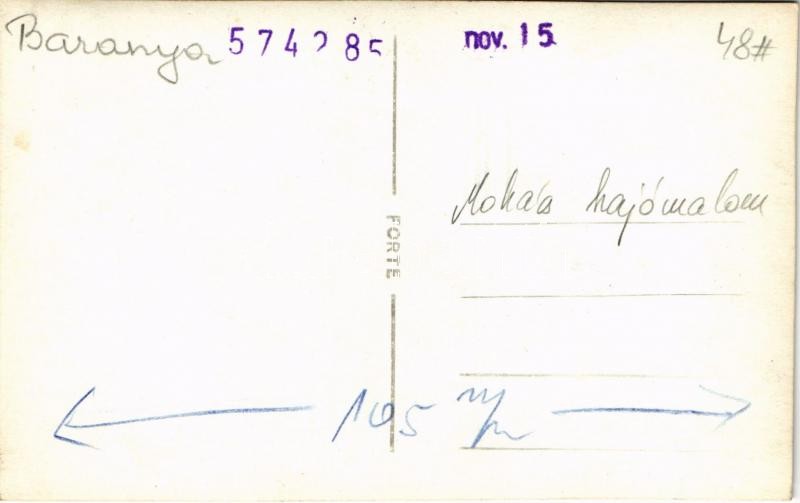 Baranya 574285
nov. 15
48#
Mohács hajómalom
FORTE
105 m/m